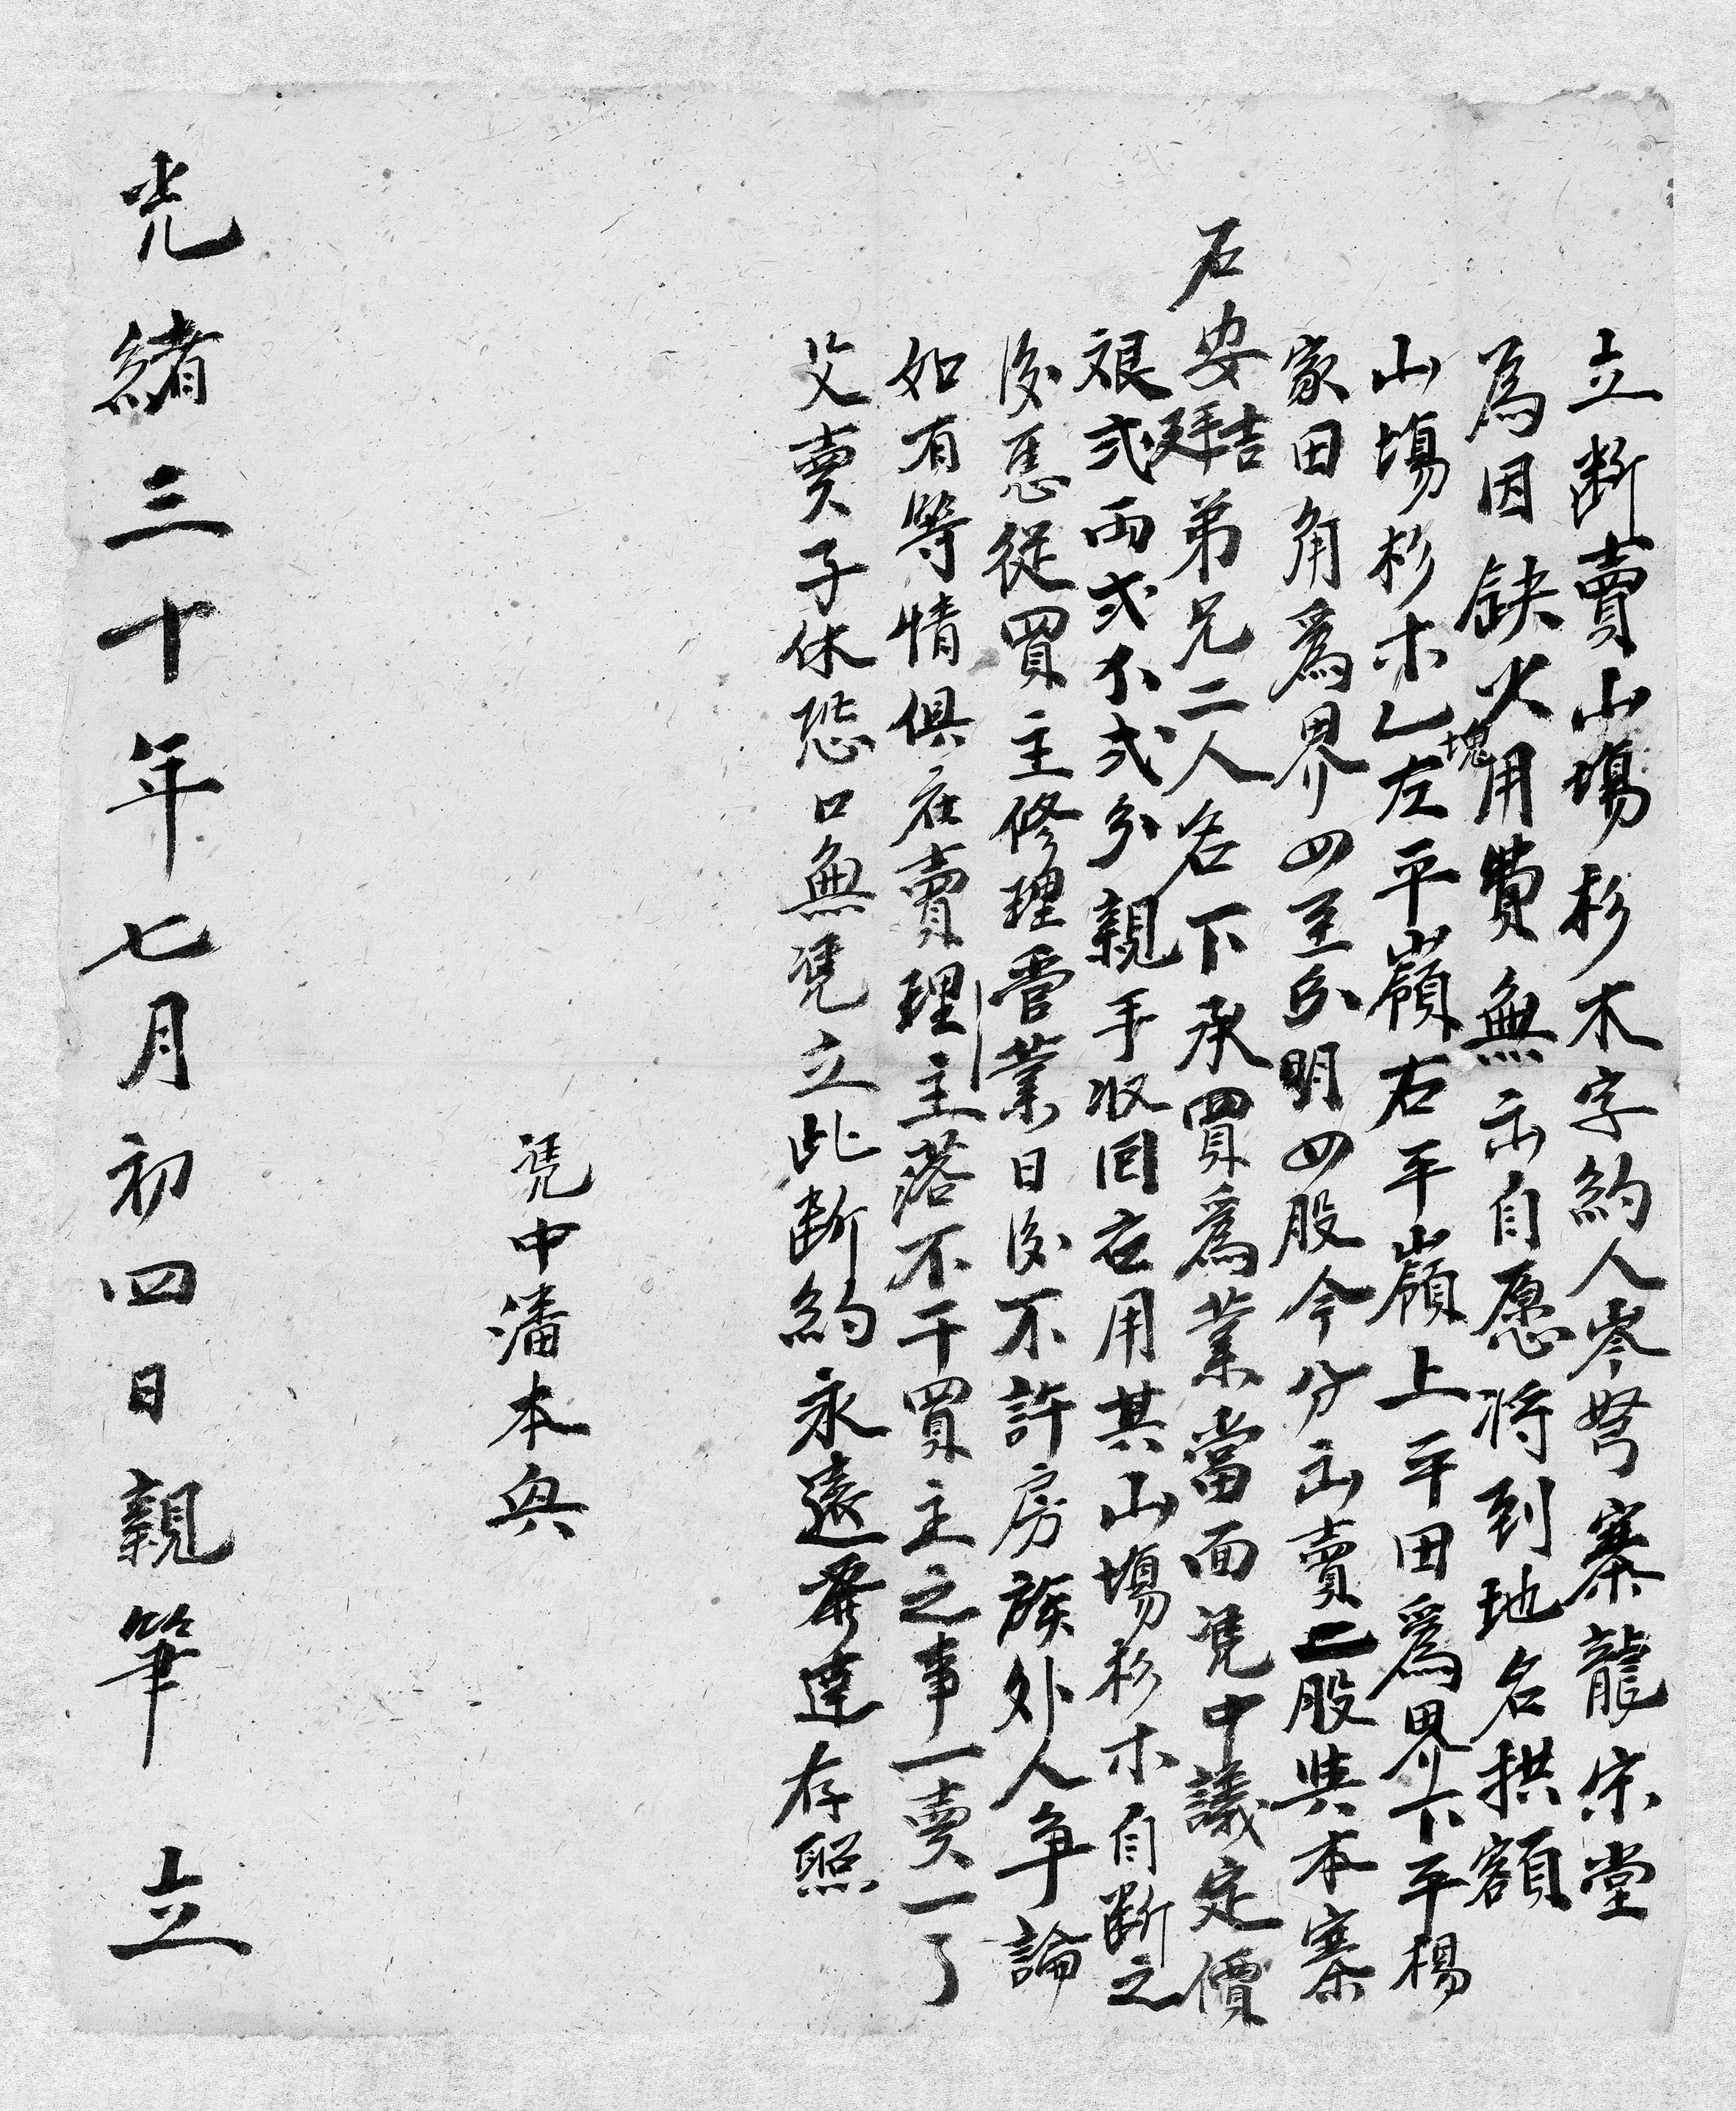 立断賣山塲杉木字約人岑弩寨龍宗堂
為因缺少用費無出自愿将到地名拱額
山塲杉木乙塊左平嶺右平嶺上平田爲界下平楊
家田角爲界四至分明四股今分出賣二股與本寨
石安廷吉弟兄二人名下承買爲業當面凴中議定價
艮弍両弍个弍分親手收囬应用其山塲杉木自断之
後慿從買主修理管業日後不許房族外人争論
如有等情俱在賣理主落不干買主之事一賣一了
父賣子休恐口無凴立此断約永遠發達存照
凴中潘本興
光緒三十年七月初四日親筆 立